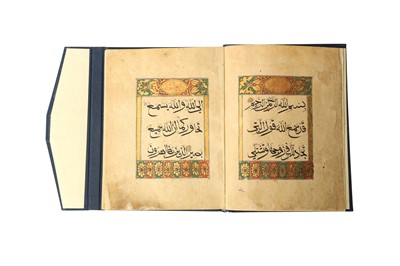 بسم الله الرحمن الرحيم
قد سمع الله قول التي
تجادلك في زوجها وتشتكي
الى الله والله يسمع
تحاوركما ان الله سميع
بصير الذين يظاهرون